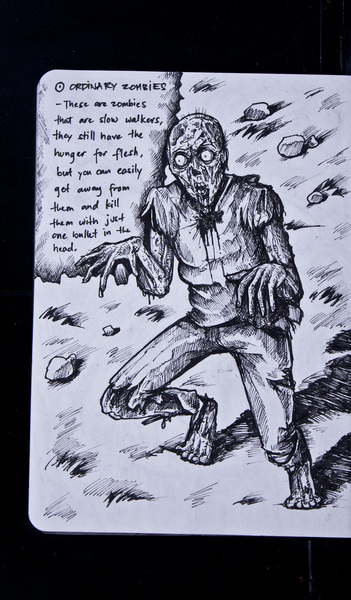 ⊙ ORDINARY ZOMBIES
- These are zombies
that are slow walkers,
they still have the
hunger for flesh,
but you can easily
get away from
them and kill
them with just
one bullet in the
head.